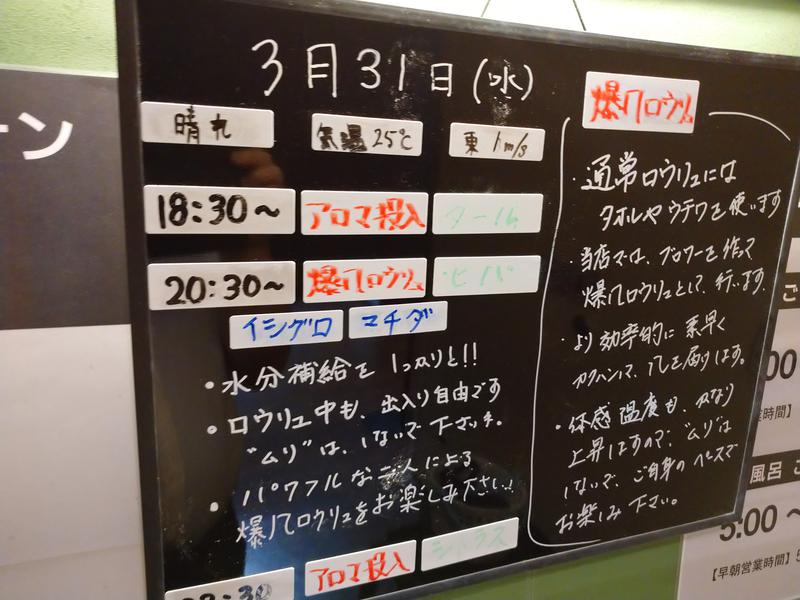 ーン
3月31日(水)
晴れ 気温25℃ 東1m/s
18:30〜 アロマ投入
20:30〜 爆风ロウリュ ヒバ
イシグロ マチダ
・水分補給をしっかりと!!
・ロウリュ中も、出入り自由です
"ムリ"は、しないで下さいネ。
・パワフルな二人による
爆风ロウリュをお楽しみ下さい!
アロマ投入 シトラス
爆风ロウリュ
・通常ロウリュには
タオルやウチワを使います
・当店では、ブロワーを使って
爆风ロウリュとして、行います。
・より効率的に素早く
カクハンして、风を届けます。
・体感温度も、かなり
上昇しますので、"ムリ"は
しないで、ご自身のペースで
お楽しみ下さい。
ご
:00
業時間】
風呂 ご
5:00 〜
【早朝営業時間】5